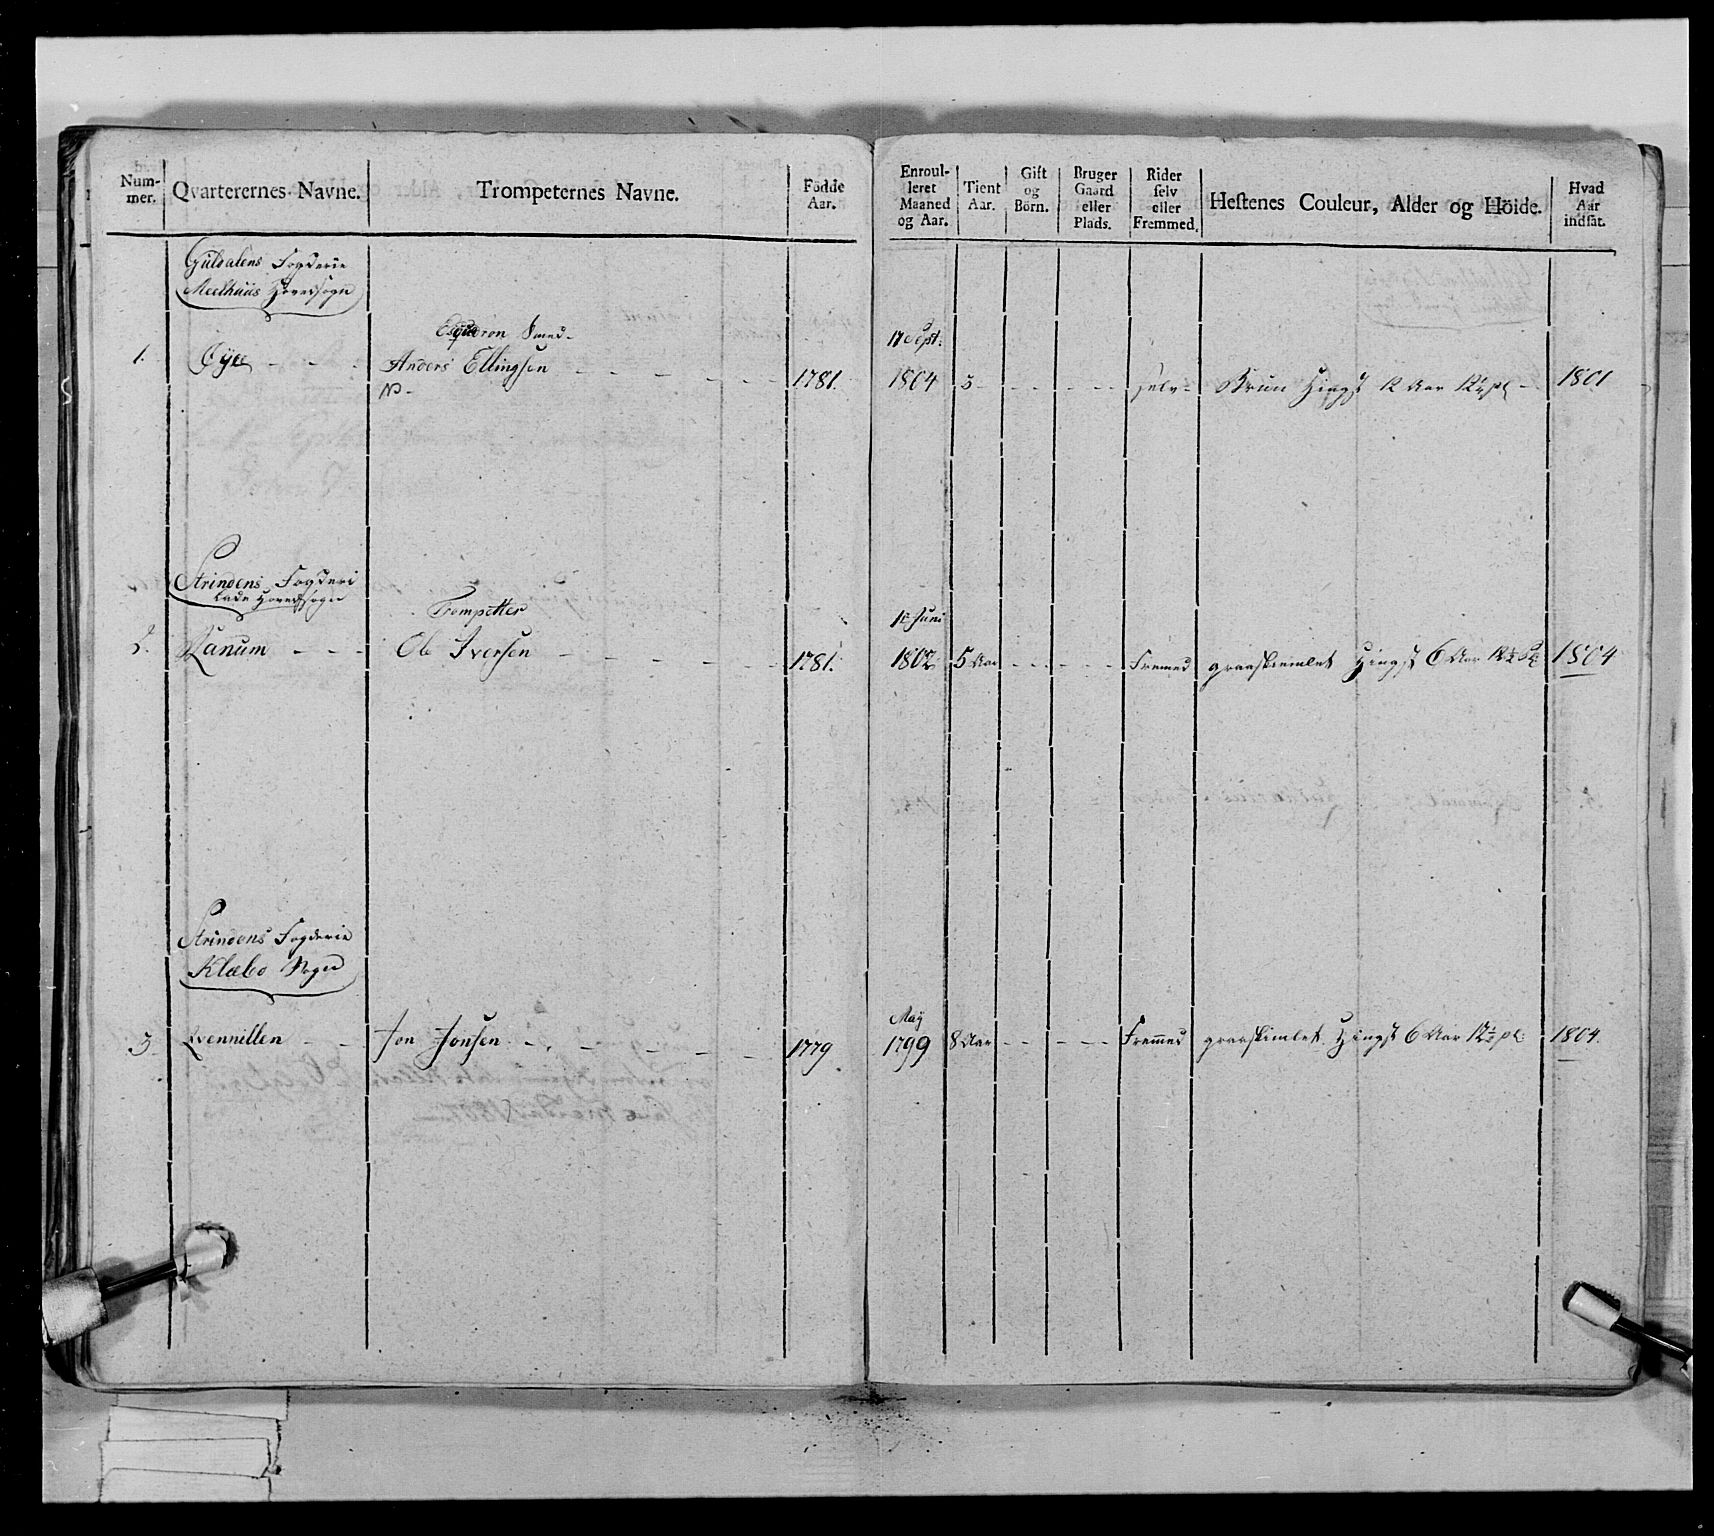 Num-
mer. Qvarterernes Navne. Trompeternes Navne. Födde
Aar.
Enroul-
leret
Maaned
og Aar. Tient
Aar. Gift
og
Börn. Bruger
Gaard
eller
Plads. Rider
selv
eller
Fremmed. Hestenes Couleur, Alder og Höide. Hvad
Aar
indsat.
Guldalens Fogderie
Meelhuus Hovedsogn
Esqudron Smed 17 Sept:
1. Øye Anders Ellingsen 1781. 1804 3 selv Brun Hingst 12 Aar 1801
Strindens Fogderi
Lade Hovedsogn
Trompetter Juni
2. Ranum Ole Iversen 1781. 1802 5 Aar Fremed graaskimlet Hingst 6 Aar 1804
Strindens Fogderie
Klæbo Sogn
May
3. Qvennillen Jon Jonsen 1779 1799 8 Aar Fremmed graaskimlet Hingst 6 Aar 12½ pl: 1804.